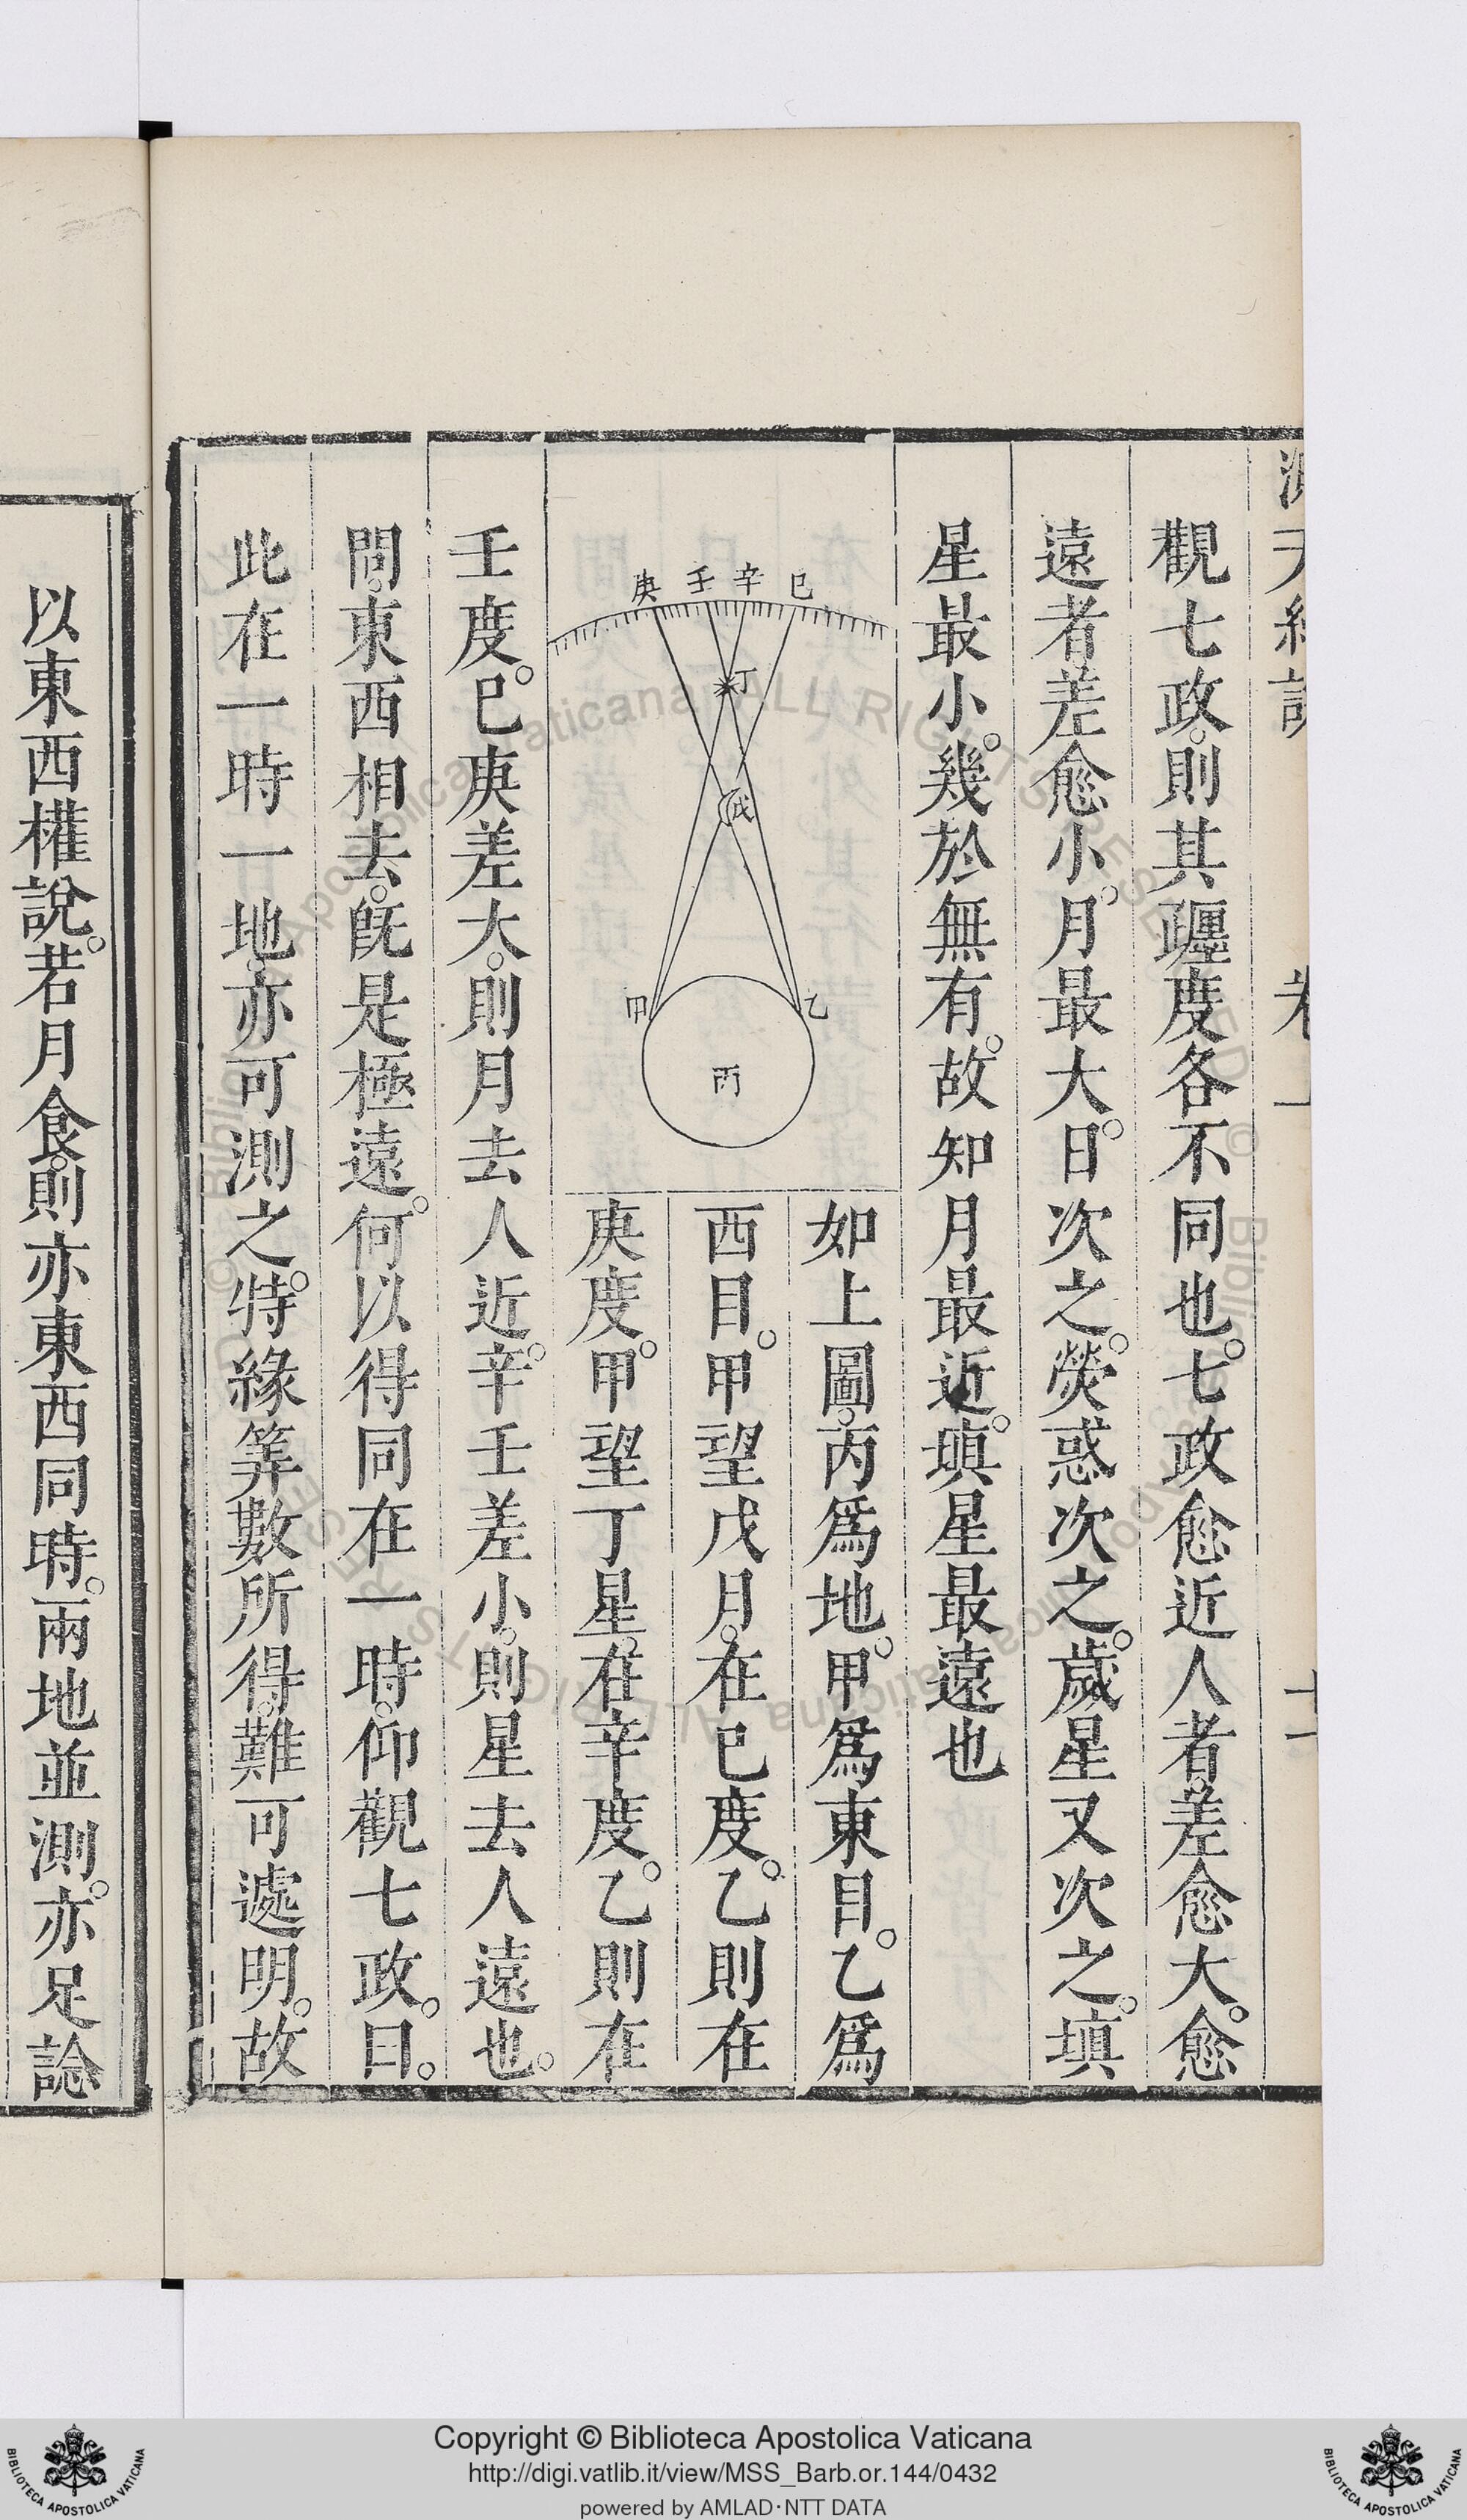 觀七政。則其躔度各不同也。七政愈近人者。差愈大。愈
遠者差愈小。月最大。日次之。熒惑次之。歲星又次之。填
星最小。幾於無有。故知月最近。填星最遠也
庚 壬 辛 巳
丁
戊
甲 乙
丙
如上圖。丙爲地。甲爲東目。乙爲
西目。甲望戊月。在巳度。乙則在
庚度。甲望丁星。在辛度。乙則在
壬度。巳庚差大。則月去人近。辛壬差小。則星去人遠也。
問。東西相去。旣是極遠。何以得同在一時。仰觀七政。曰。
此在一時一地。亦可測之。特緣筭數所得。難可遽明。故
以東西權說。若月食。則亦東西同時。兩地並測。亦足諗
Copyright © Biblioteca Apostolica Vaticana
http://digi.vatlib.it/view/MSS_Barb.or.144/0432
powered by AMLAD·NTT DATA
BIBLIOTECA APOSTOLICA VATICANA
BIBLIOTECA APOSTOLICA VATICANA